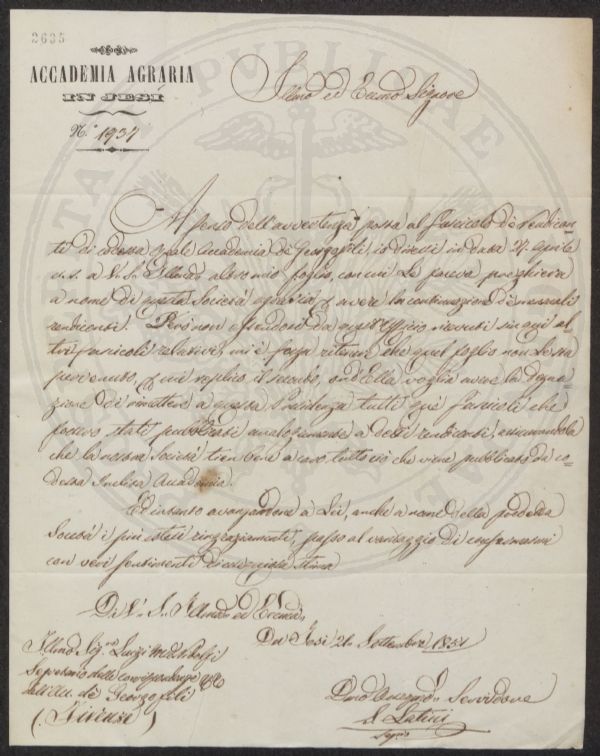 2635
ACCADEMIA AGRARIA
IN JESI
N.° 1937
Illmo ed Eccmo Signore
A senso dell'avvertenza posta al fascicolo de' Rendicon-
ti di codesta Reale Accademia de' Georgofili, io diressi in data 24 aprile
a V. S. Illma altro mio foglio, con cui Le faceva preghiera
a nome di questa Società agraria avere la continuazione de'
rendiconti. Però non essendosi da quest'Officio ricevuti sin qui al-
tri fascicoli relativi, mi è forza ritenere che quel foglio non Le sia
pervenuto, replico il secondo, ond'Ella voglia avere la degna-
zione di rimettere a questa Presidenza tutti que' fascicoli che
fossero stati pubblicati analogamente a detti rendiconti, assicurandola
che la nostra Società tien bene a caro tuttociò che viene pubblicato da co-
desta Inclita Accademia.
Ed intanto avanzandone a Lei, anche a nome della
Società i più ringraziamenti, passo al vantaggio di confermarmi
con veri sentimenti di stima
Di V. S. Illma ed Eccma
Illmo Sig. Luigi
Da Jesi 21 Settembre 1857
Segretario delle corrispondenze
dell'Acc. de' Georgofili
(Firenze)
Servidore
Latini
Segrio